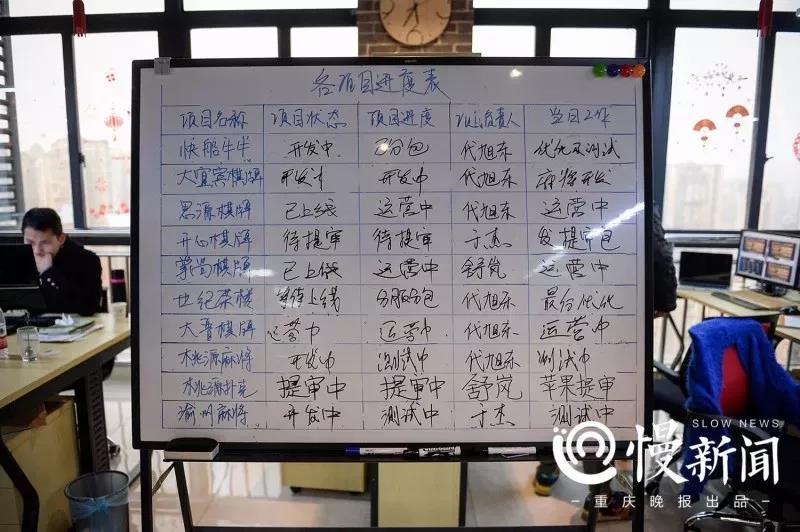 各项目进度表
项目名称 项目状态 项目进度 项目负责人 当日工作
快船牛牛 开发中 已分包 代旭东 优化及测试
大宜宾棋牌 开发中 开发中 代旭东 麻将开发
思源棋牌 已上线 运营中 代旭东 运营中
开心棋牌 待提审 待提审 于杰 发提审包
掌尚棋牌 已上线 运营中 舒岚 运营中
世纪茶楼 待上线 分服分包 代旭东 最后优化
大鲁棋牌 运营中 运营中 代旭东 运营中
桃源麻将 开发中 测试中 代旭东 测试中
桃源扑克 提审中 提审中 舒岚 苹果提审
渝州麻将 开发中 测试中 于杰 测试中
SLOW NEWS
慢新闻
重庆晚报出品